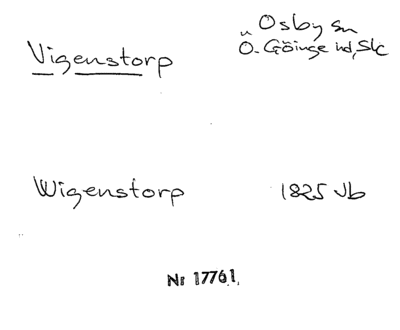 Vigenstorp
Osby sn
Ö. Göinge hd, Skc
Wigenstorp
1825 Jb
Nr 17761.